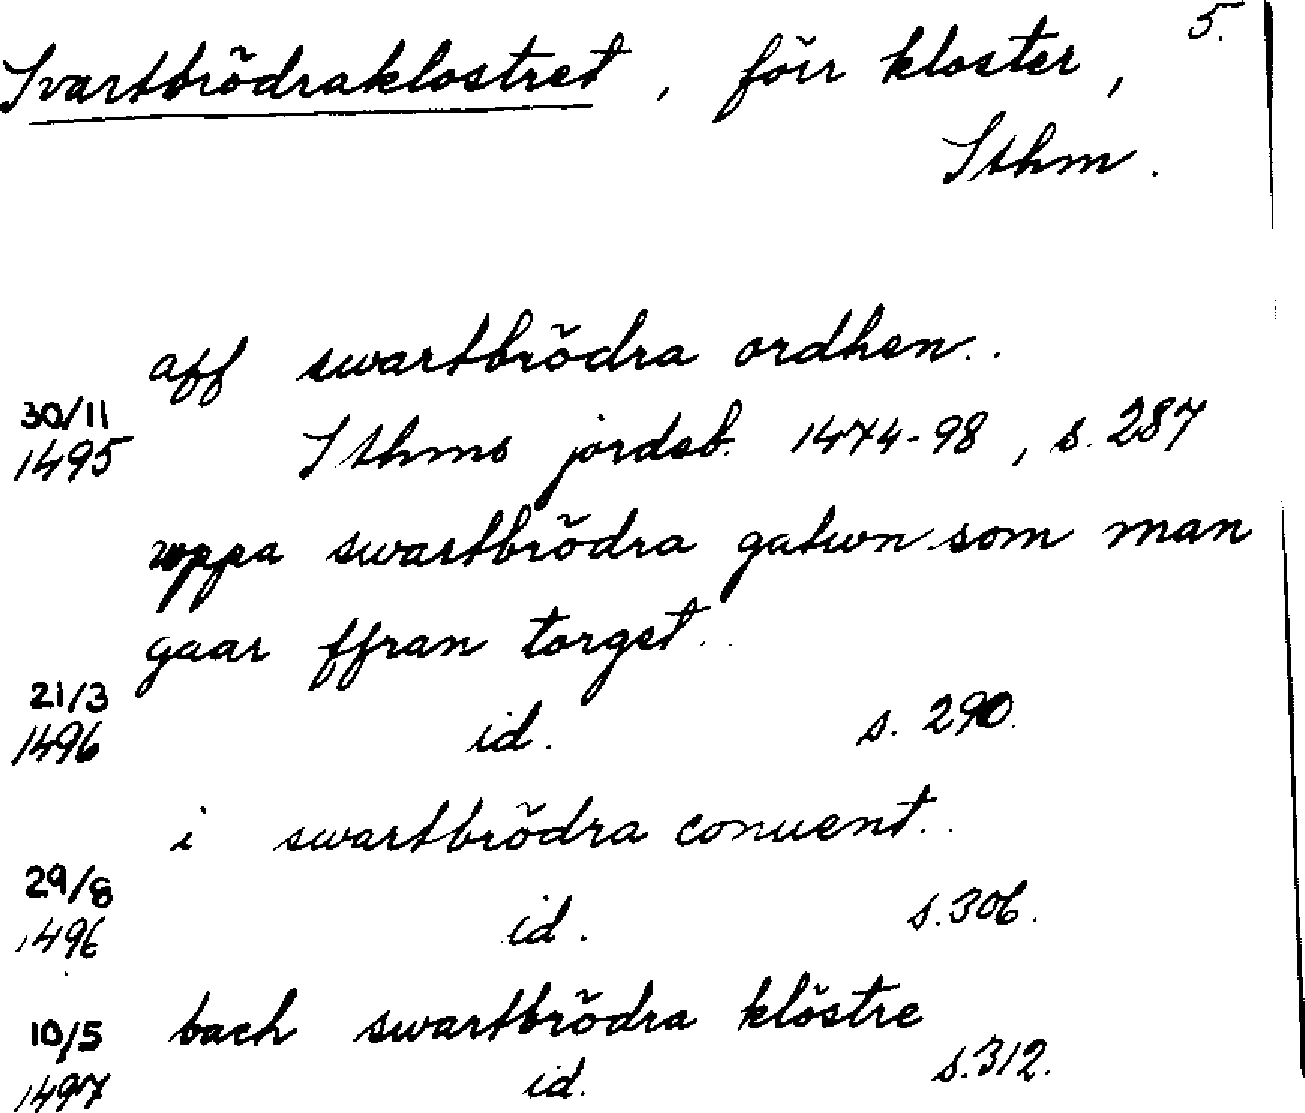 5.
Svartbrödraklostret, förr kloster,
Sthm.
aff swartbrödra ordhen..
30/11
1495 Sthms jordeb. 1474-98, s. 287
uppa swartbrödra gatwn som man
gaar ffran torget..
21/3
1496 id. s. 290.
i swartbrödra conuent..
29/8
1496 id. s. 306.
10/5 bach swartbrödra klöstre
1497 id. s. 312.